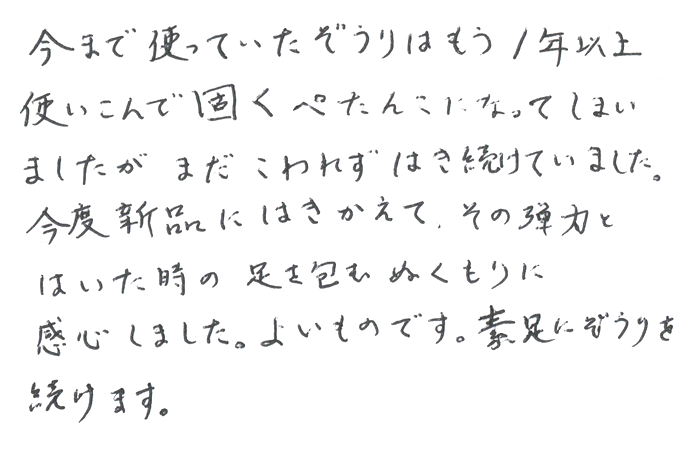 今まで使っていたぞうりはもう1年以上
使いこんで固くぺたんこになってしまい
ましたが まだ こわれず はき続けていました。
今度新品にはきかえて、その弾力と
はいた時の 足を包む ぬくもりに
感心しました。よいものです。素足にぞうりを
続けます。